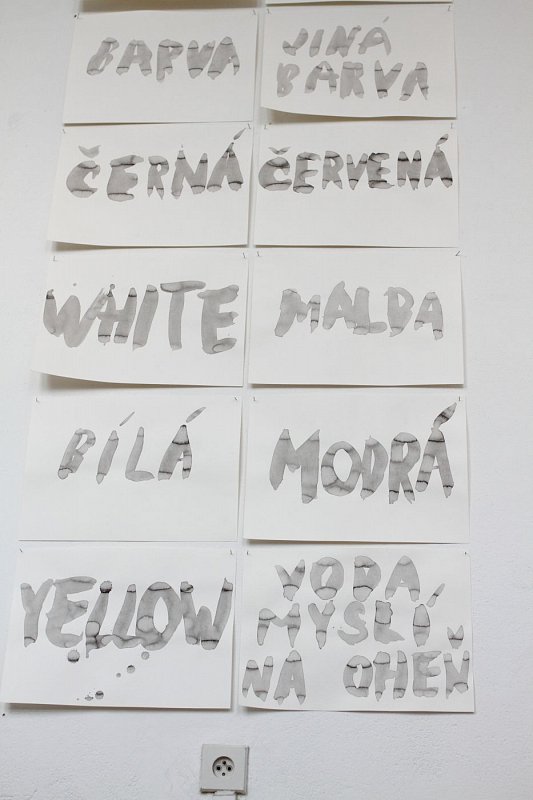 BARVA
JINÁ
BARVA
ČERNÁ
ČERVENÁ
WHITE
MALBA
BÍLÁ
MODRÁ
YELLOW
VODA
MYSLÍ
NA OHEŇ